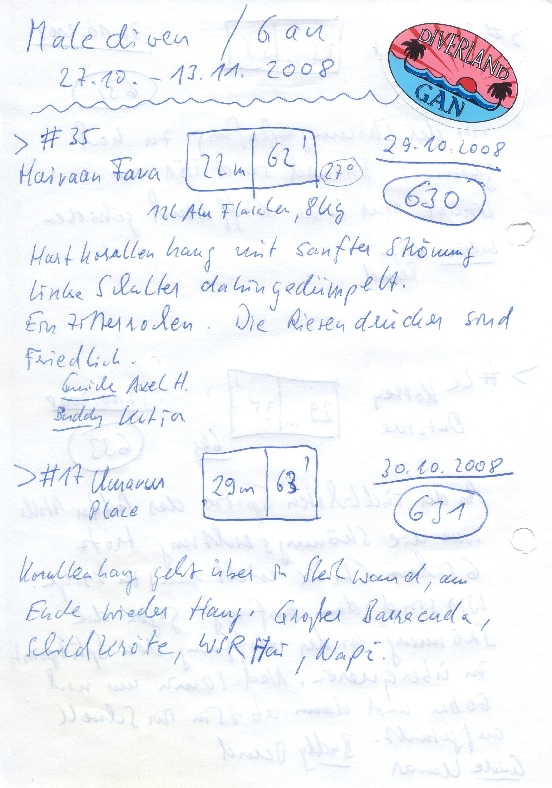 Malediven / Gan
27.10. - 13.11. 2008
DIVERLAND
GAN
> #35 22m 62' 27° 29.10.2008
Mairaan Fara 630
12L Alu Flaschen, 8kg
Hartkorallenhang mit sanfter Strömung
linke Schulter dahingedümpelt.
Ein Zitterrochen. Die Riesendrücker sind
Friedlich.
Guide Axel H.
Buddy Katja
> #17 29m 63' 30.10.2008
Place 631
Korallenhang geht über in Steilwand, am
Ende wieder Hang. Großer Barracuda,
Schildkröte, WSR Hai, Napi.